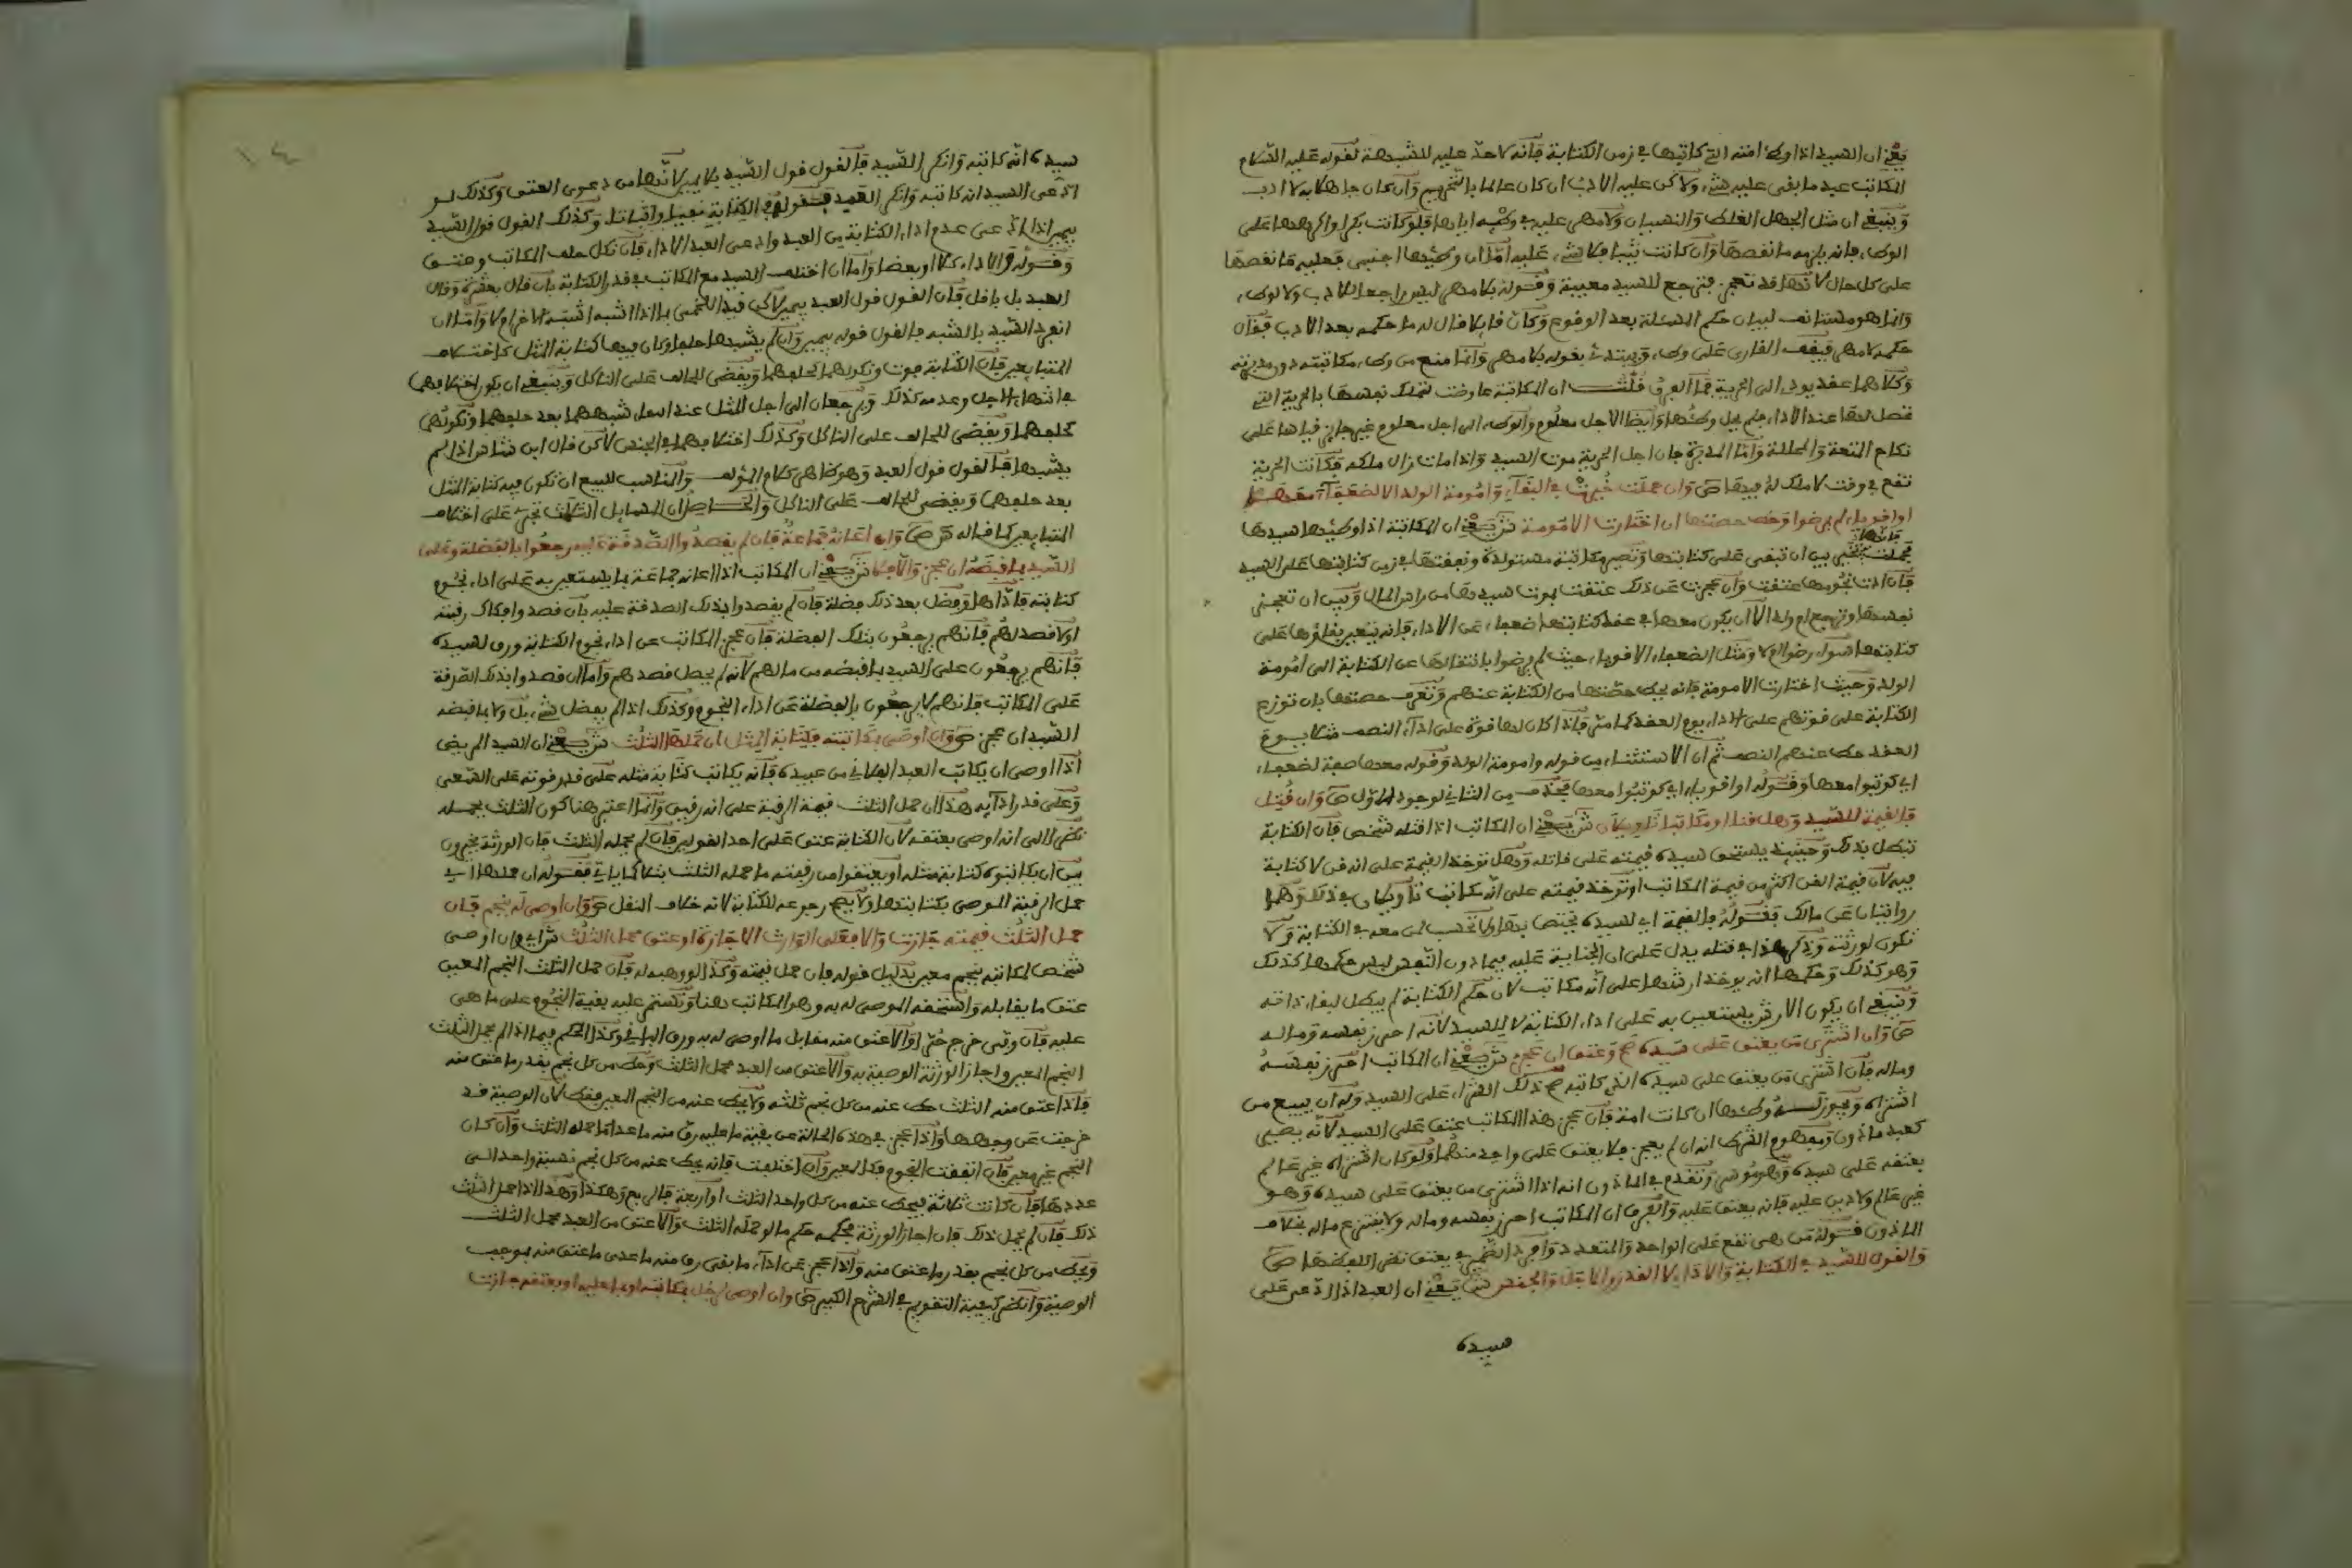 يعني ان السيد اذا وطئ امته التي كاتبها في زمن الكتابة فانه لا حد عليه للشبهة لقوله عليه السلام
المكاتب عبد ما بقي عليه شيء ولاكن عليه الادب ان كان عالما بالتحريم وان كان جاهلا به لا ادب
وينبغي ان مثل الجهل الغلط والنسيان ولا مهر عليه في وطئه اياها فلو كانت بكرا واكرهها على
الوطء فانه يلزمه ما نقصها وان كانت ثيبا فلا شيء عليه اما ان وطئها اجنبي فعليه ما نقصها
على كل حال لانها قد تعجز فترجع للسيد معيبة وقوله بلا مهر ليس راجعا للادب ولا لوطء
وانما هو مستانف لبيان حكم المسئلة بعد الوقوع وكان قايلا قال له ما حكمه بعد الادب فقال
حكمه لا مهر فيقف القارئ على وطء ويبتدئ بقوله بلا مهر وانما منع من وطء مكاتبته دون مدبرته
وكلاهما عقد يودي الى الحرية فما الفرق قلت ان المكاتبة عاوضت لتملك نفسها بالحرية التي
تحصل لها عند الاداء فلم يحل وطئها وايضا الاجل معلوم والوطء الى اجل معلوم غير جايز قياسا على
نكاح المتعة والمحللة واما المدبرة فان اجل الحرية موت السيد واذا مات زال ملكه فكانت الحرية
تقع في وقت لا ملك له فيها ص وان حملت خيرت في البقاء وامومة الولد الا لضعفاء معها
او اقوياء لم يرضوا وحط حصتها ان اختارت الامومة ش يعني ان المكاتبة اذا وطئها سيدها
فحملت فانها تخير بين ان تبقى على كتابتها وتصير مكاتبة مستولدة ونفقتها في زمن كتابتها على السيد
فان ادت نجومها عتقت وان عجزت عن ذلك عتقت بموت سيدها من راس المال وبين ان تعجز
نفسها وترجع ام ولد الا ان يكون معها في عقد كتابتها ضعفاء عن الاداء فانه يتعين بقاؤها على
كتابتها سواء رضوا ام لا ومثل الضعفاء الاقوياء حيث لم يرضوا بانتقالها عن الكتابة الى امومة
الولد وحيث اختارت الامومة فانه يحط حصتها من الكتابة عنهم وتعرف حصتها بان توزع
الكتابة على قوتهم على الاداء يوم العقد كما مر فاذا كان لها قوة على اداء النصف مثلا يوم
العقد حط عنهم النصف ثم ان الاستثناء من قوله وامومة الولد وقوله معها صفة لضعفاء
اي كوتبوا معها وقوله او اقوياء اي كوتبوا معها فحذف من الثاني لوجود الاول ص وان قتل
فالقيمة للسيد وهل قنا او مكاتبا تاويلان ش يعني ان المكاتب اذا قتله شخص فان الكتابة
تبطل بذلك وحينئذ يستحق سيده قيمته على قاتله وهل توخذ القيمة على انه قن لا كتابة
فيه لان قيمة القن اكثر من قيمة المكاتب او توخذ قيمته على انه مكاتب تاويلان في ذلك وهما
روايتان عن مالك فقوله فالقيمة اي لسيده يختص بها ولا تحسب لمن معه في الكتابة ولا
تكون لورثته وذكر هذا في قتله يدل على ان الجناية عليه فيما دون النفس ليس حكمها كذلك
وهو كذلك وحكمها انه يوخذ ارشها على انه مكاتب لان حكم الكتابة لم يبطل لبقاء ذاته
وينبغي ان يكون الارش يستعين به على اداء الكتابة لا للسيد لانه احرز نفسه وماله
ص وان اشترى من يعتق على سيده صح وعتق ان عجز ش يعني ان المكاتب احرز نفسه
وماله فان اشترى من يعتق على سيده الذي كاتبه صح ذلك الشراء على السيد وله ان يبيع من
اشتراه ويجوز له وطئها ان كانت امة فان عجز هذا المكاتب عتق على السيد لانه يصير
كعبد ماذون ومفهوم الشرط انه ان لم يعجز فلا يعتق على واحد منهما ولو كان اشتراه غير عالم
يعتقه على سيده وهو موسر وتقدم في الماذون انه اذا اشترى من يعتق على سيده وهو
غير عالم ولا دين عليه فانه يعتق عليه والفرق ان المكاتب احرز نفسه وماله ولا ينتزع ماله بخلاف
الماذون قوله من هي تقع على الواحد والمتعدد وافرد الضمير في يعتق نظرا للفظها ص
والقول للسيد في الكتابة والاداء لا القدر والاجل والجنس ش يعني ان العبد اذا ادعى على
سيده
١٤
سيده انه كاتبه وانكر السيد فالقول قول السيد بلا يمين لانها من دعوى العتق وكذلك لو
ادعى السيد انه كاتبه وانكر العبد فقوله في الكتابة نفيا واثباتا وكذلك القول قول السيد
بيمين اذا ادعى عدم اداء الكتابة من العبد وادعى العبد الاداء فان نكل حلف المكاتب وعتق
وقوله والاداء كلا او بعضا واما ان اختلف السيد مع المكاتب في قدر الكتابة بان قال بعشرة وقال
العبد بل باقل فان القول قول العبد بيمين لاكن قيد اللخمي بما اذا اشبه اشبه الاخر ام لا واما ان
انفرد السيد بالشبه فالقول قوله بيمين وان لم يشبها حلفا وكان فيها كتابة المثل كاختلاف
المتبايعين فان الكتابة فوت ونكولهما كحلفهما ويقضى للحالف على الناكل وينبغي ان يكون اختلافهما
في انتهاء الاجل وعدمه كذلك ويرجعان الى اجل المثل عند عدم شبههما بعد حلفهما ونكولهما
كحلفهما ويقضى للحالف على الناكل وكذلك اختلافهما في الجنس لاكن قال ابن شاس اذا لم
يشبها فالقول قول العبد وهو ظاهر كلام المؤلف والمناسب للبيع ان تكون فيه كتابة المثل
بعد حلفهما ويقضى للحالف على الناكل والحاصل ان المسايل الثلاث تجري على اختلاف
المتبايعين كما قاله ص وان اعانه جماعة فان لم يقصدوا الصدقة عليه رجعوا بالفضلة وعلى
السيد بما قبضه ان عجز والا فلا ش يعني ان المكاتب اذا اعانه جماعة بما يستعين به على اداء نجوم
كتابته فاداها وفضل بعد ذلك فضلة فان لم يقصدوا بذلك الصدقة عليه بان قصدوا فكاك رقبته
او لا قصد لهم فانهم يرجعون بتلك الفضلة فان عجز المكاتب عن اداء نجوم الكتابة ورق لسيده
فانهم يرجعون على السيد بما قبضه من مالهم لانه لم يحصل قصدهم واما ان قصدوا بذلك الصدقة
على المكاتب فانهم لا يرجعون بالفضلة عن اداء النجوم وكذلك اذا لم يفضل شيء بل ولا بما قبضه
السيد ان عجز ص وان اوصى بمكاتبته فكتابة المثل ان حملها الثلث ش يعني ان السيد المريض
اذا اوصى ان يكاتب العبد الفلاني من عبيده فانه يكاتب كتابة مثله على قدر قوته على السعي
وعلى قدر ادايه هذا ان حمل الثلث قيمة الرقبة على انه رقيق وانما اعتبر هنا كون الثلث يحمله
نظرا الى انه اوصى بعتقه لان الكتابة عتق على احد القولين فان لم يحمله الثلث فان الورثة يخيرون
بين ان يكاتبوه كتابة مثله او يعتقوا من رقبته ما حمله الثلث بتلا كما ياتي فقوله ان حملها اي
حمل الرقبة الموصى بكتابتها ولا يصح رجوعه للكتابة لانه خلاف النقل ص وان اوصى له بنجم فان
حمل الثلث قيمته جازت والا فعلى الوارث الاجازة او عتق محمل الثلث ش اي وان اوصى
شخص لمكاتبه بنجم معين بدليل قوله فان حمل قيمته وكذا لو وهبه له فان حمل الثلث النجم المعين
عتق ما يقابله واستحقه الموصى له به وهو المكاتب هنا وتستمر عليه بقية النجوم على ما هي
عليه فان وفى خرج حرا والا عتق منه مقابل ما اوصى له به ورق الباقي وكذا الحكم فيما اذا لم يحمل الثلث
النجم المعين واجاز الورثة الوصية به والا عتق من العبد محمل الثلث وحط من كل نجم بقدر ما عتق منه
فاذا عتق منه الثلث حط عنه من كل نجم ثلثه ولا يحط عنه من النجم المعين فقط لان الوصية قد
خرجت عن وجهها واذا عجز في هذه الحالة عن بقية ما عليه رق منه ما عدا ما حمله الثلث وان كان
النجم غير معين فان اتفقت النجوم فكالمعين وان اختلفت فانه يحط عنه من كل نجم نسبة واحد الى
عددها فان كانت ثلاثة فيحط عنه من كل واحد الثلث او اربعة فالربع وهكذا وهذا اذا حمل الثلث
ذلك فان لم يحمل ذلك فان اجاز الورثة فحكمه حكم ما لو حمله الثلث والا عتق من العبد محمل الثلث
ويحط من كل نجم بقدر ما عتق منه واذا عجز عن اداء ما بقي رق منه ما عدى ما عتق منه بموجب
الوصية وانظر كيفية التقويم في الشرح الكبير ص وان اوصى لرجل بمكاتبه او بما عليه او بعتقه جازت